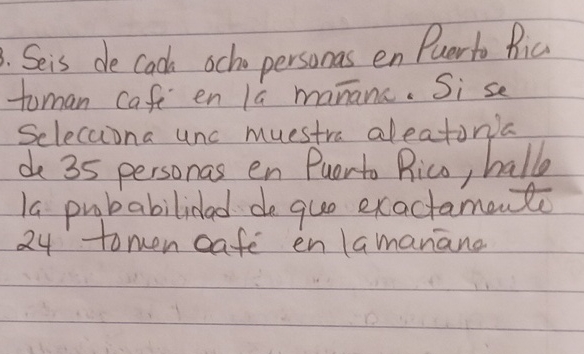 3. Seis de cada ocho personas en Puerto Rico
toman café en la mañana. Si se
Selecciona una muestra aleatoria
de 35 personas en Puerto Rico, halle
la probabilidad de que exactamente
24 tomen café en la mañana